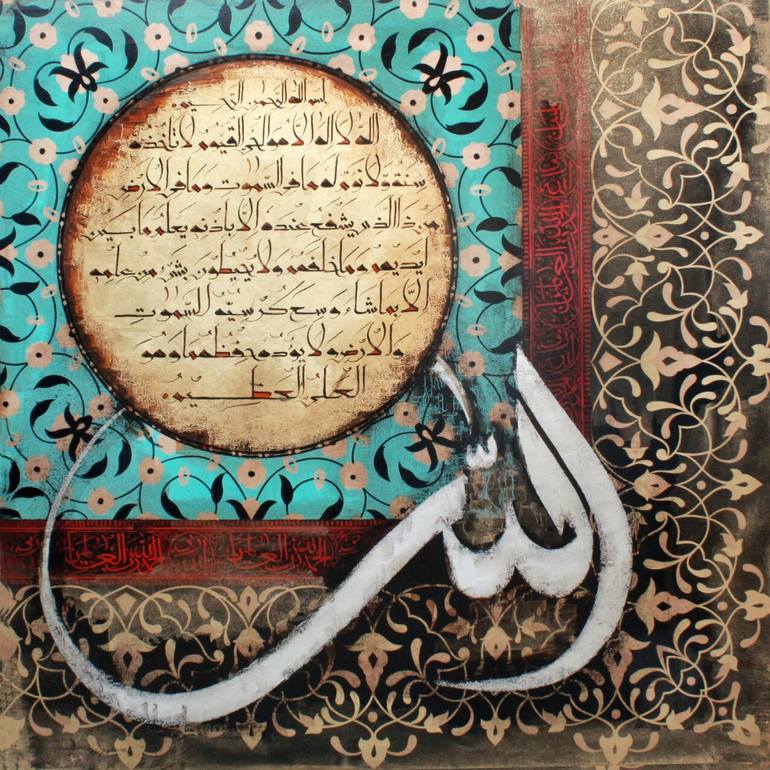 بسم الله الرحمن الرحيم
الله لا اله الا هو الحي القيوم لا تاخذه
سنة ولا نوم له ما في السموت وما في الارض
من ذا الذي يشفع عنده الا باذنه يعلم ما بين
ايديهم وما خلفهم ولا يحيطون بشئ من علمه
الا بما شاء وسع كرسيه السموت
والارض ولا يوده حفظهما وهو
العلي العظيم
الله